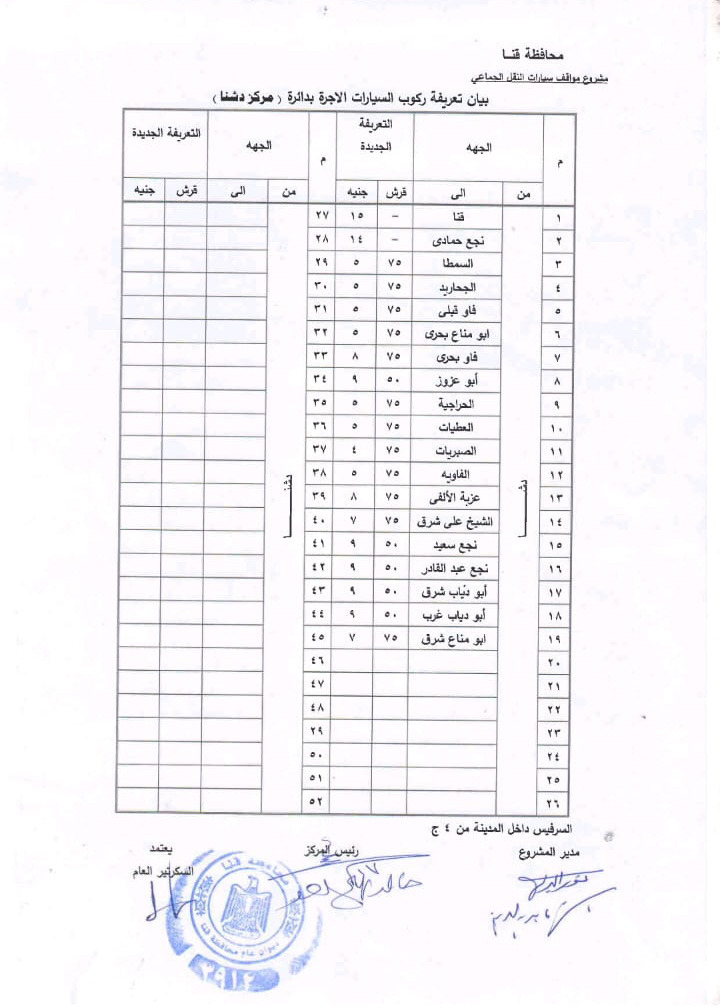 محافظة قنــا
مشروع مواقف سيارات النقل الجماعي
بيان تعريفة ركوب السيارات الاجرة بدائرة ( مركز دشنا )
م الجهه التعريفة الجديدة م الجهه التعريفة الجديدة
من الى قرش جنيه من الى قرش جنيه
١ قنا - ١٥ ٢٧
٢ نجع حمادى - ١٤ ٢٨
٣ السمطا ٧٥ ٥ ٢٩
٤ الجحاريد ٧٥ ٥ ٣٠
٥ فاو قبلى ٧٥ ٥ ٣١
٦ ابو مناع بحرى ٧٥ ٥ ٣٢
٧ فاو بحرى ٧٥ ٨ ٣٣
٨ أبو عزوز ٥٠ ٩ ٣٤
٩ الحراجية ٧٥ ٥ ٣٥
١٠ العطيات ٧٥ ٥ ٣٦
١١ الصبريات ٧٥ ٤ ٣٧
١٢ دشنـــــا الفاويه ٧٥ ٥ ٣٨ دشنـــــا
١٣ عزبة الألفى ٧٥ ٨ ٣٩
١٤ الشيخ على شرق ٧٥ ٧ ٤٠
١٥ نجع سعيد ٥٠ ٩ ٤١
١٦ نجع عبد القادر ٥٠ ٩ ٤٢
١٧ أبو دياب شرق ٥٠ ٩ ٤٣
١٨ أبو دياب غرب ٥٠ ٩ ٤٤
١٩ ابو مناع شرق ٧٥ ٧ ٤٥
٢٠ ٤٦
٢١ ٤٧
٢٢ ٤٨
٢٣ ٢٩
٢٤ ٥٠
٢٥ ٥١
٢٦ ٥٢
السرفيس داخل المدينة من ٤ ج
مدير المشروع رئيس المركز يعتمد
السكرتير العام
محافظة قنا
ديوان عام محافظة قنا
٣٩١٢